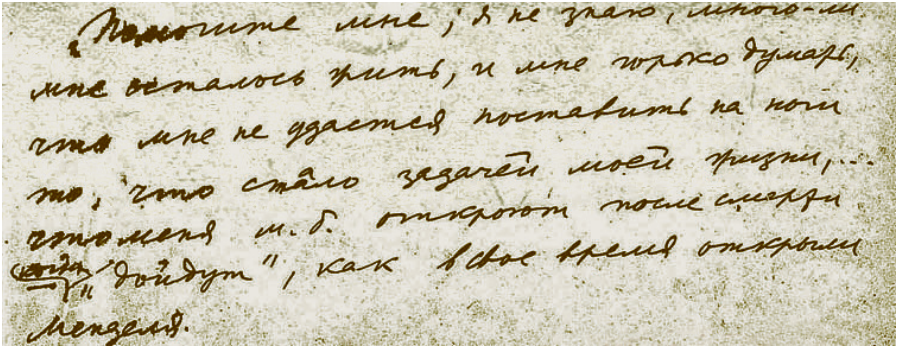 „Помогите мне; я не знаю, много-ли
мне осталось жить, и мне горько думать,
что мне не удастся поставить на ноги
то, что стало задачей моей жизни,...
что меня м.б. откроют после смерти
когда „дойдут“, как в свое время открыли
Менделя.